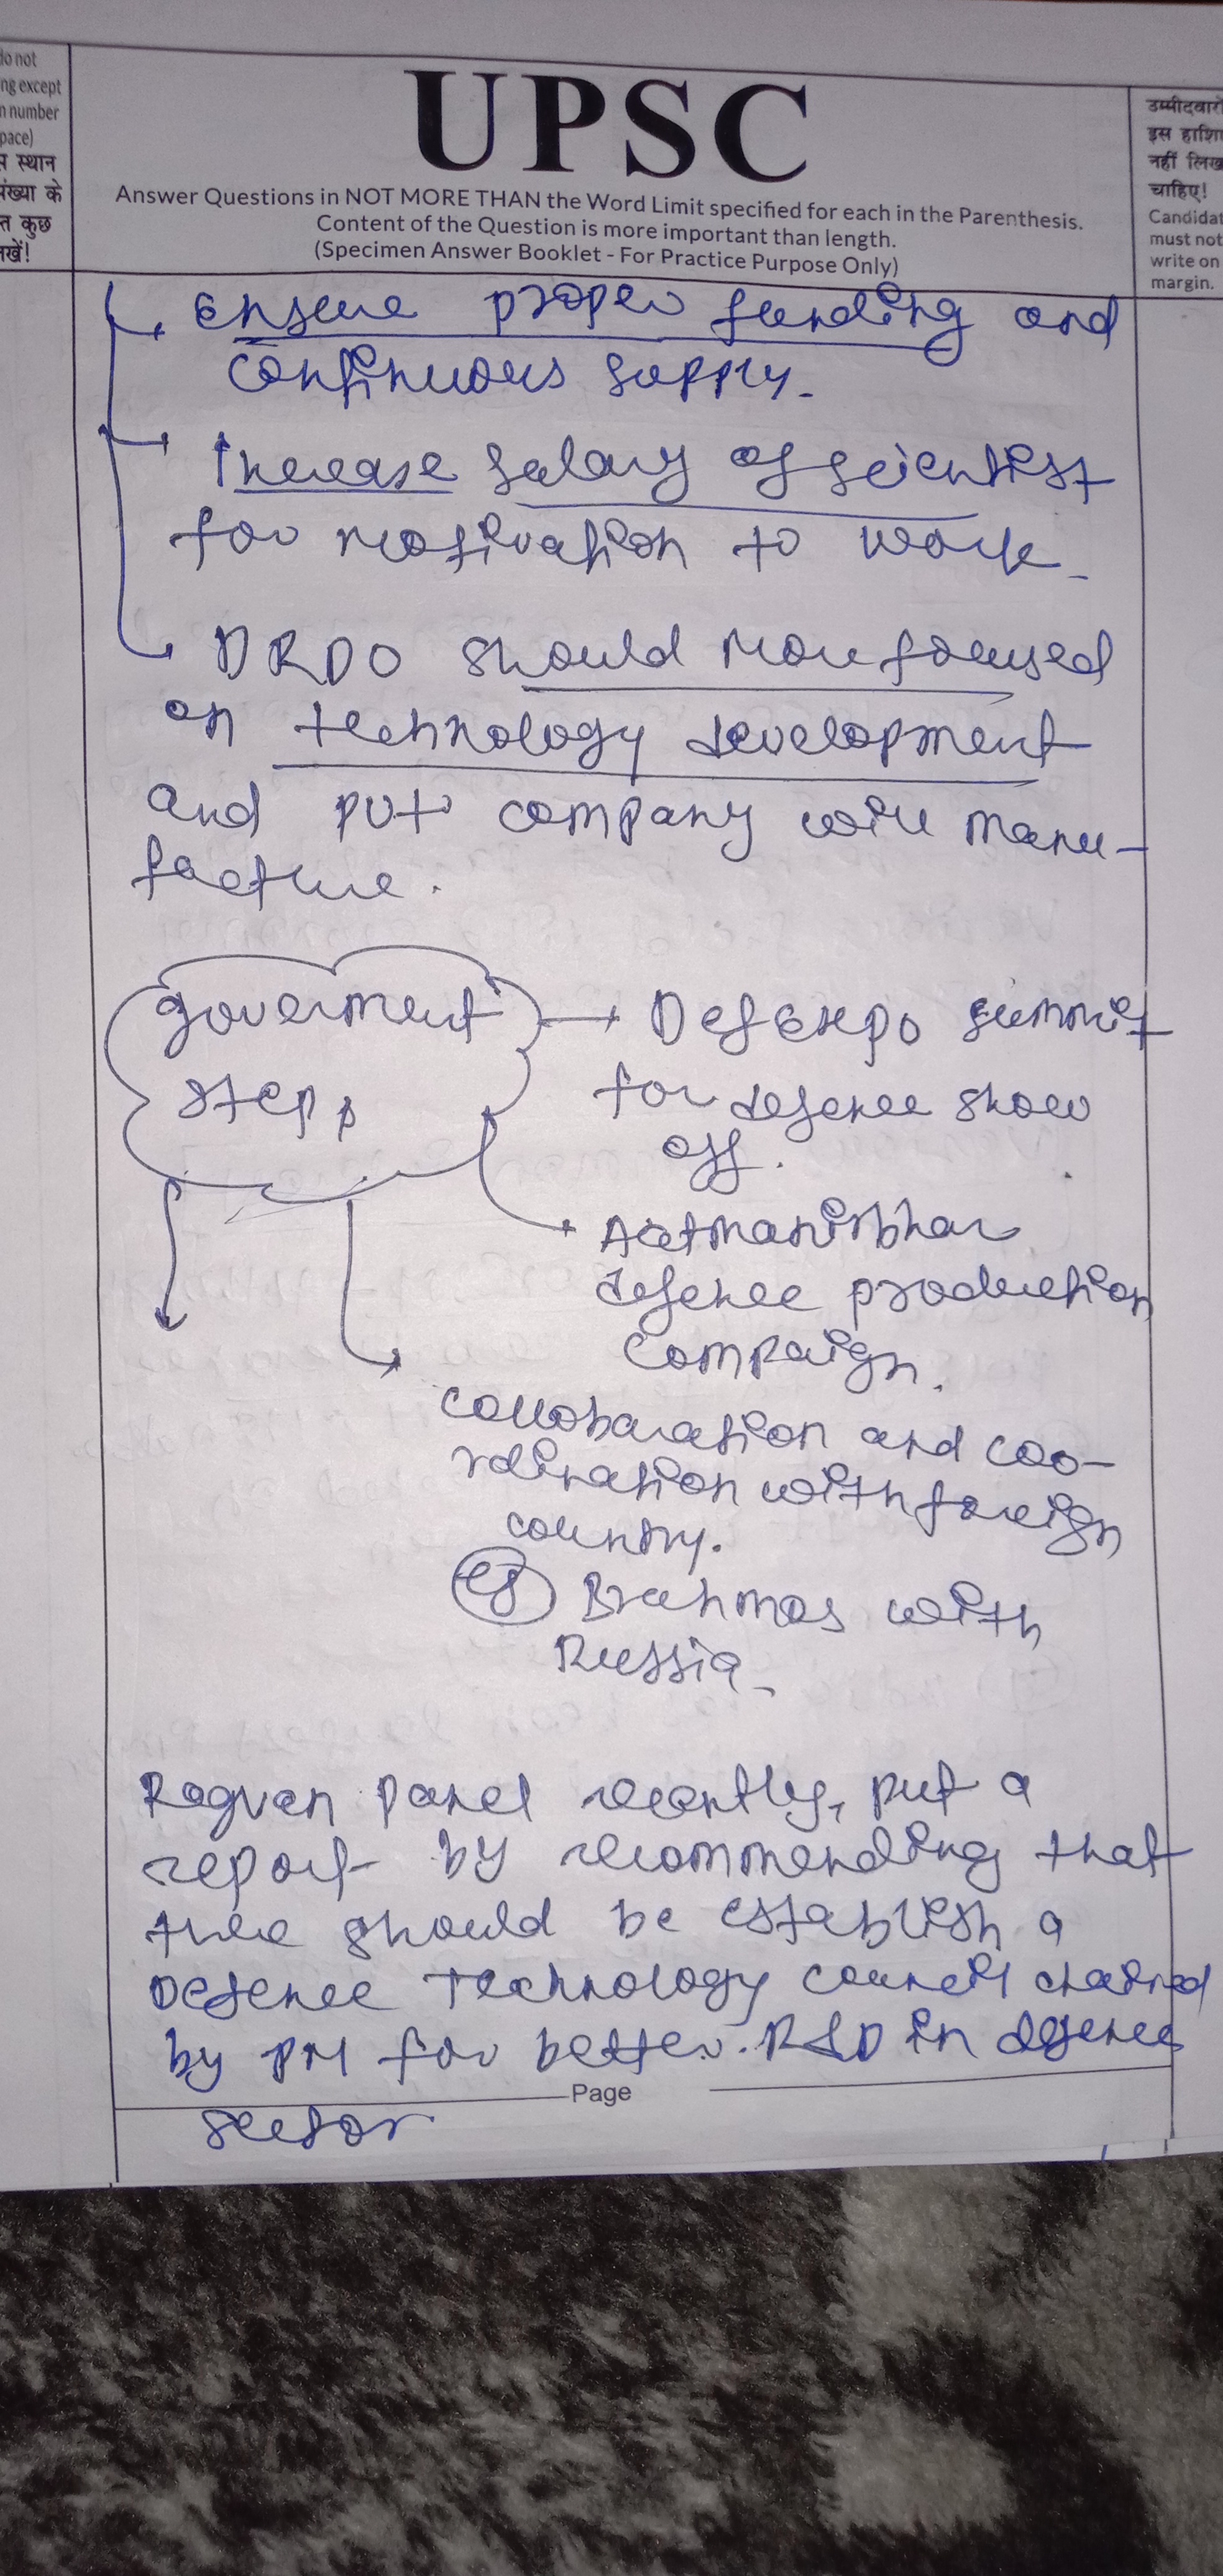 do not
ng except
n number
pace)
स स्थान
संख्या के
त कुछ
खें!
UPSC
Answer Questions in NOT MORE THAN the Word Limit specified for each in the Parenthesis.
Content of the Question is more important than length.
(Specimen Answer Booklet - For Practice Purpose Only)
उम्मीदवारों
इस हाशि
नहीं लिख
चाहिए!
Candidat
must not
write on
margin.
Ensure proper funding and
continuous supply.
Increase salary of scientist
for motivation to work.
DRDO should more focused
on technology development
and put company will manu-
facture.
government
step
DefExpo summit
for defence show
off.
defence production
campaign.
collobaration and coo-
rdination with foreign
country.
eg Brahmos with
Russia.
panel recently, put a
report by recommending that
there should be establish a
Defence Technology council chaired
by PM for better R&D in defence
Page
sector